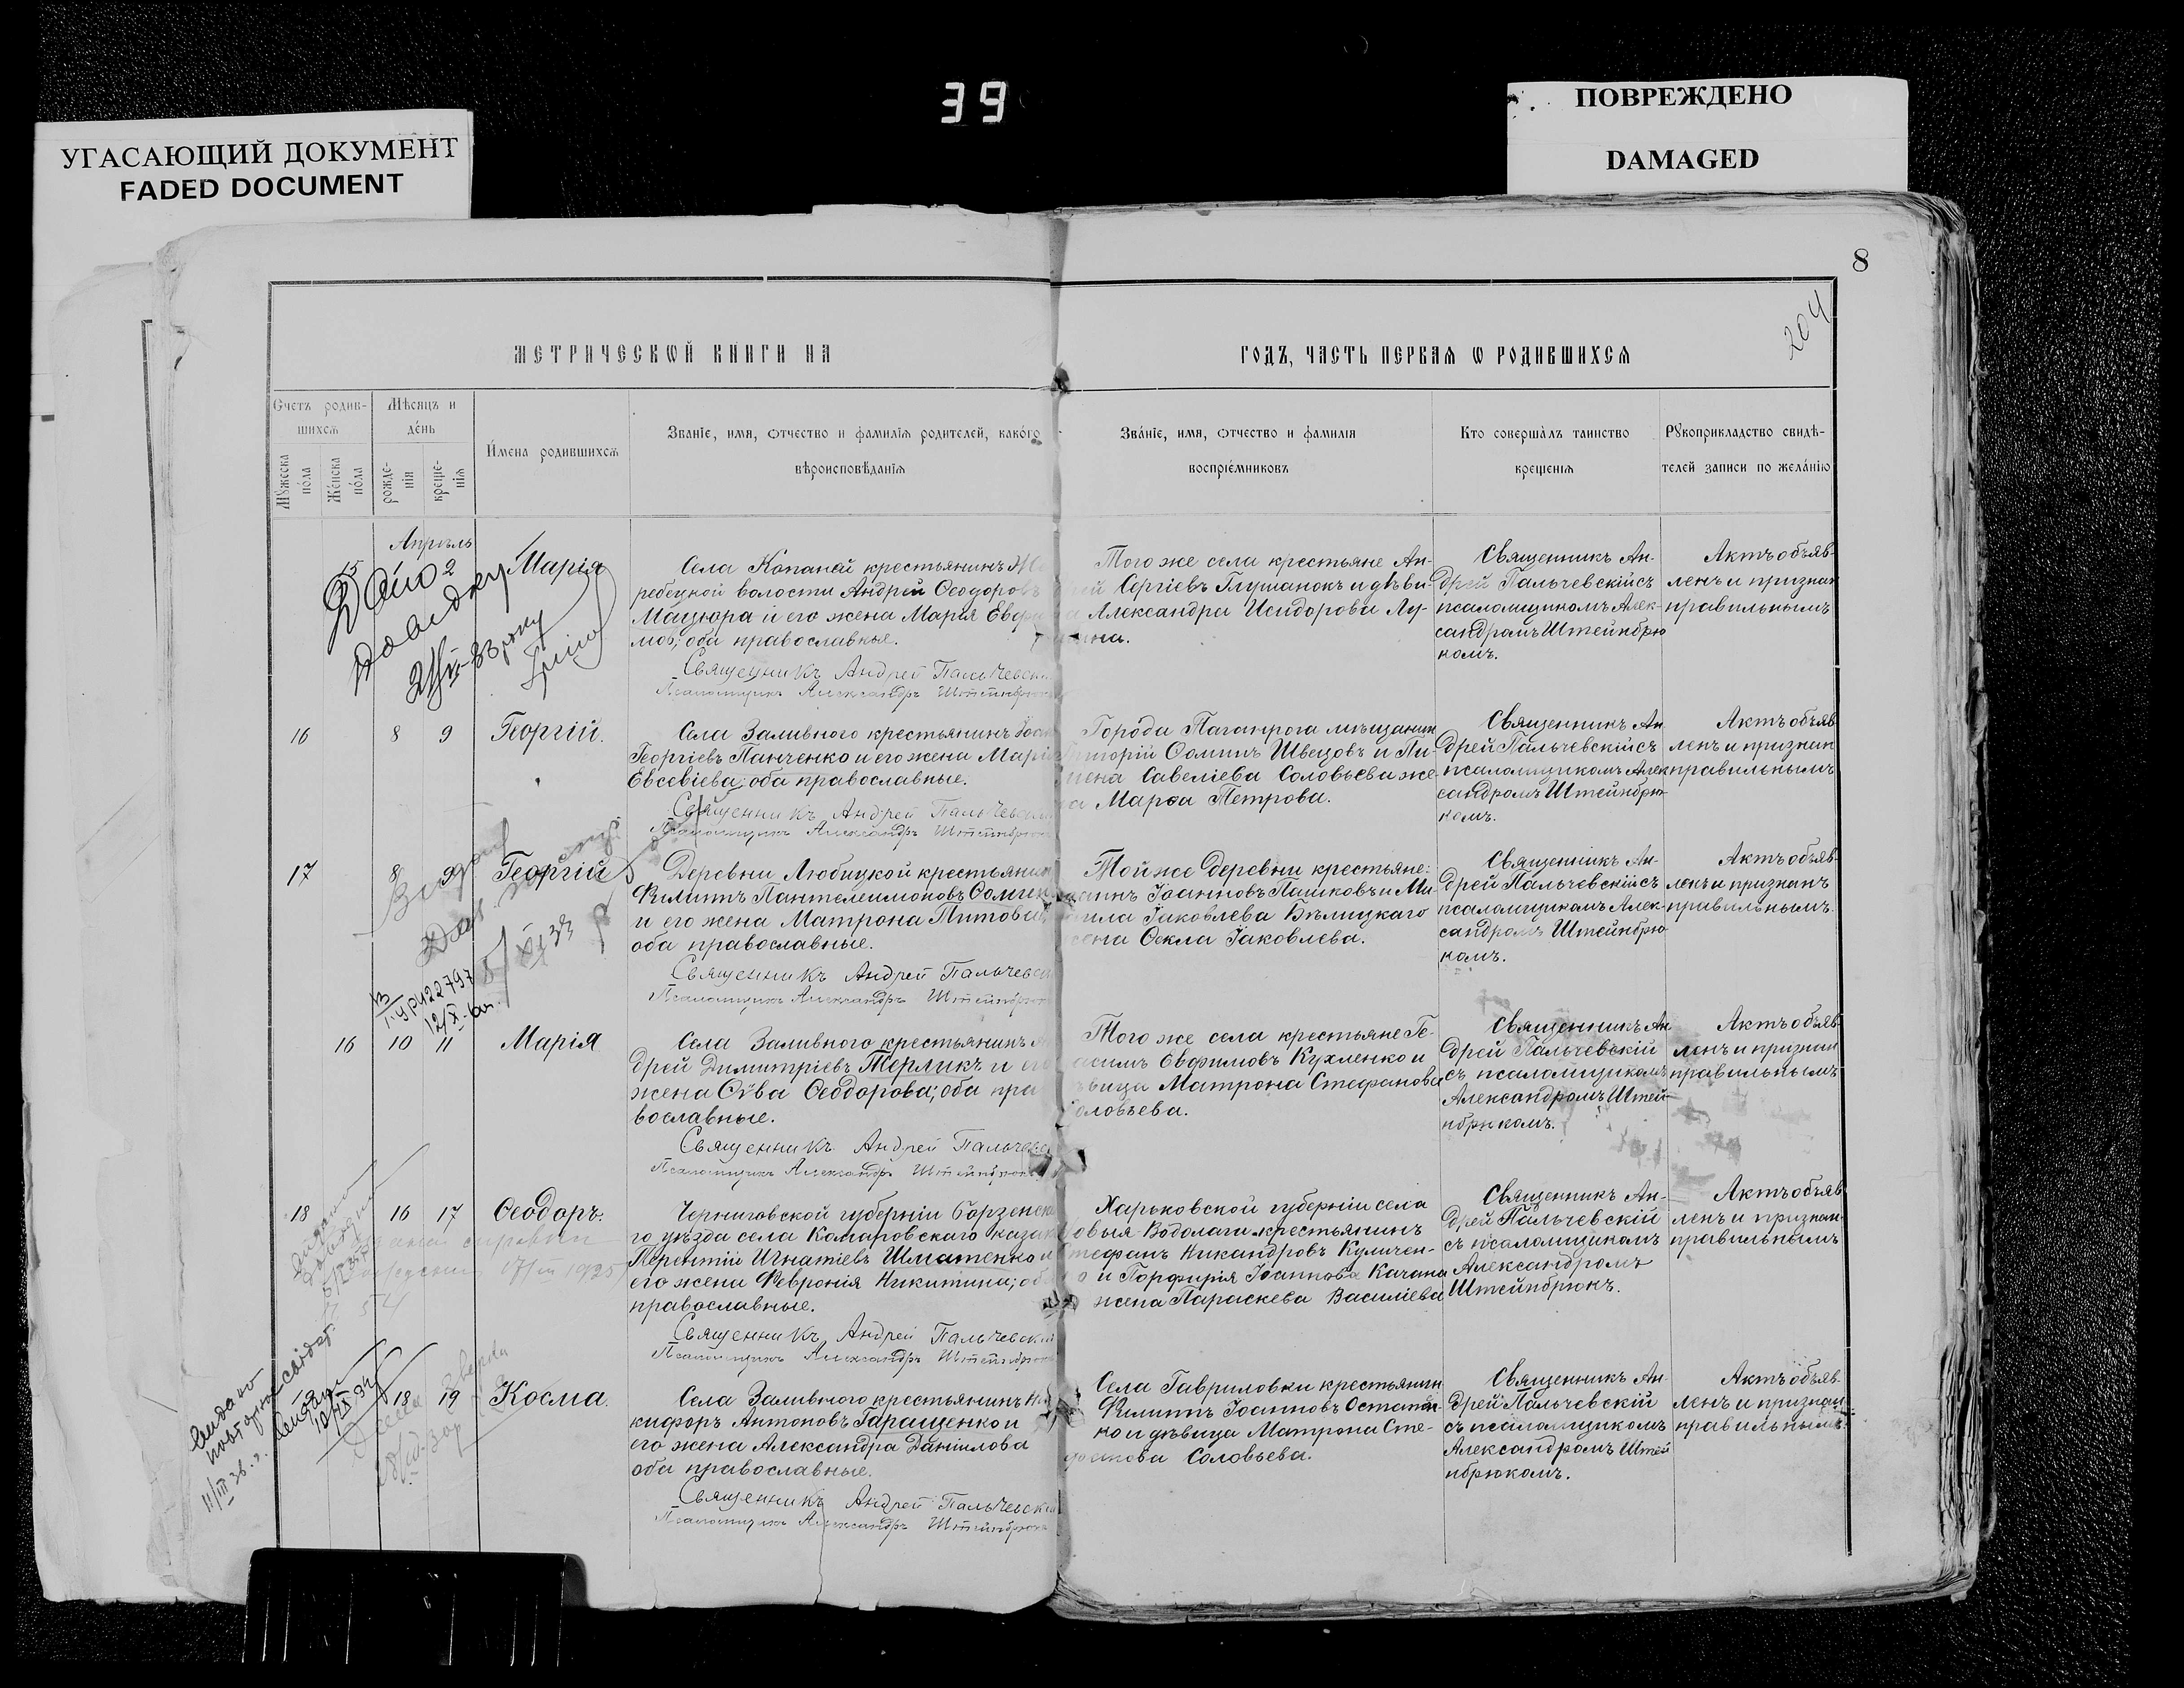 39
УГАСАЮЩИЙ ДОКУМЕНТ
FADED DOCUMENT
ПОВРЕЖДЕНО
DAMAGED
8
204
МЕТРИЧЕСКОЙ КНИГИ НА
ГОДЪ, ЧАСТЬ ПЕРВАЯ Ѡ РОДИВШИХСЯ
Счетъ родив-
шихся
Мужеска
пола
Женска
пола
Мѣсяцъ и
день
рожде-
нія
креще-
нія
Имена родившихся
Званіе, имя, отчество и фамилія родителей, какого
вѣроисповѣданія
Званіе, имя, отчество и фамилія
воспріемниковъ
Кто совершалъ таинство
крещенія
Рукоприкладство свидѣ-
телей записи по желанію
Апрѣль
15 2 Марія
Села Копаней крестьянинъ
ребецкой волости Андрей Ѳеодоровъ
Мацюра и его жена Марія Евфи
мов; оба православные.
Священникъ Андрей Пальчевскій
Псаломщикъ Александръ Штейнбрюкъ
Того же села крестьяне Ан-
Сергіевъ Глушанокъ и дѣви-
Александра Исидорова Лу-
Священникъ Ан-
дрей Пальчевскій съ
псаломщикомъ Алек-
сандромъ Штейнбрю
комъ.
Актъ объяв-
ленъ и признан
правильнымъ
16 8 9 Георгій.
Села Заливного крестьянинъ Іоан
Георгіевъ Панченко и его жена Марія
Евсевіева; оба православные.
Священникъ Андрей Пальчевскій
Псаломщикъ Александръ Штейнбрюкъ
Города Таганрога мѣщанин
Ѳоминъ Швецовъ и Пи-
мена Савеліева Соловьева же-
на Марѳа Петрова.
Священникъ Ан
дрей Пальчевскій съ
псаломщикомъ Алек
сандромъ Штейнбрю-
комъ.
Актъ объяв
ленъ и признан
правильнымъ
17 8 9 Георгій
Деревни Любицкой крестьянин
Филиппъ Пантелеимоновъ
и его жена Матрона Титова;
оба православные.
Священникъ Андрей Пальчевскій
Псаломщикъ Александръ Штейнбрюкъ
Той же деревни крестьяне:
Іоанновъ Пашковъ и Ми-
Іаковлева Бѣлицкаго
жена Ѳекла Іаковлева.
Священникъ Ан-
дрей Пальчевскій съ
псаломщикомъ Алек-
сандромъ Штейнбрю
комъ.
Актъ объяв-
ленъ и признанъ
правильнымъ.
16 10 11 Марія
Села Заливного крестьянинъ Ан
дрей Димитріевъ Терликъ и его
жена Ѳеодорова; оба пра
вославные.
Священникъ Андрей Пальчевскій
Псаломщикъ Александръ Штейнбрюкъ
Того же села крестьяне Ге-
расимъ Евфимовъ Кухленко и
дѣвица Матрона Стефанова
Соловьева.
Священникъ Ан
дрей Пальчевскій
съ псаломщикомъ
Александромъ Штей
нбрюкомъ.
Актъ объяв
ленъ и признан
правильнымъ
18 16 17 Ѳеодоръ.
Черниговской губерніи Борзенска
го уѣзда села Комаровскаго казак
Терентій Игнатіевъ Шматенко и
его жена Февронія Никитина; оба
православные.
Священникъ Андрей Пальчевскій
Псаломщикъ Александръ Штейнбрюкъ
Харьковской губерніи села
овыя-Водолаги крестьянинъ
тефанъ Никандровъ Куличен-
о и Порфирія Іоаннова Качана
жена Параскева Василіева
Священникъ Ан-
дрей Пальчевскій
съ псаломщикомъ
Александромъ
Штейнбрюкъ.
Актъ объяв
ленъ и признан-
правильнымъ
18 19 Косма.
Села Заливного крестьянинъ Ни
кифоръ Антоновъ Гаращенко и
его жена Александра Даніилова
оба православные.
Священникъ Андрей Пальчевскій
Псаломщикъ Александръ Штейнбрюкъ
Села Гавриловки крестьянин
Филиппъ Іоанновъ
но и дѣвица Матрона Сте-
фанова Соловьева.
Священникъ Ан-
дрей Пальчевскій
съ псаломщикомъ
Александромъ Штей
нбрюкомъ.
Актъ объяв-
ленъ и признан
правильнымъ.